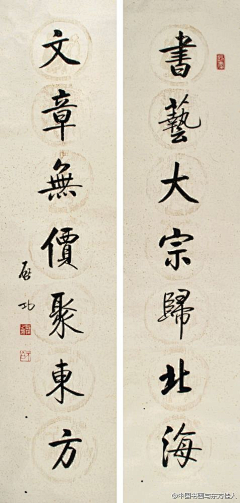 書藝大宗歸北海
文章無價聚東方
啟功
@中国书画与东方佳人